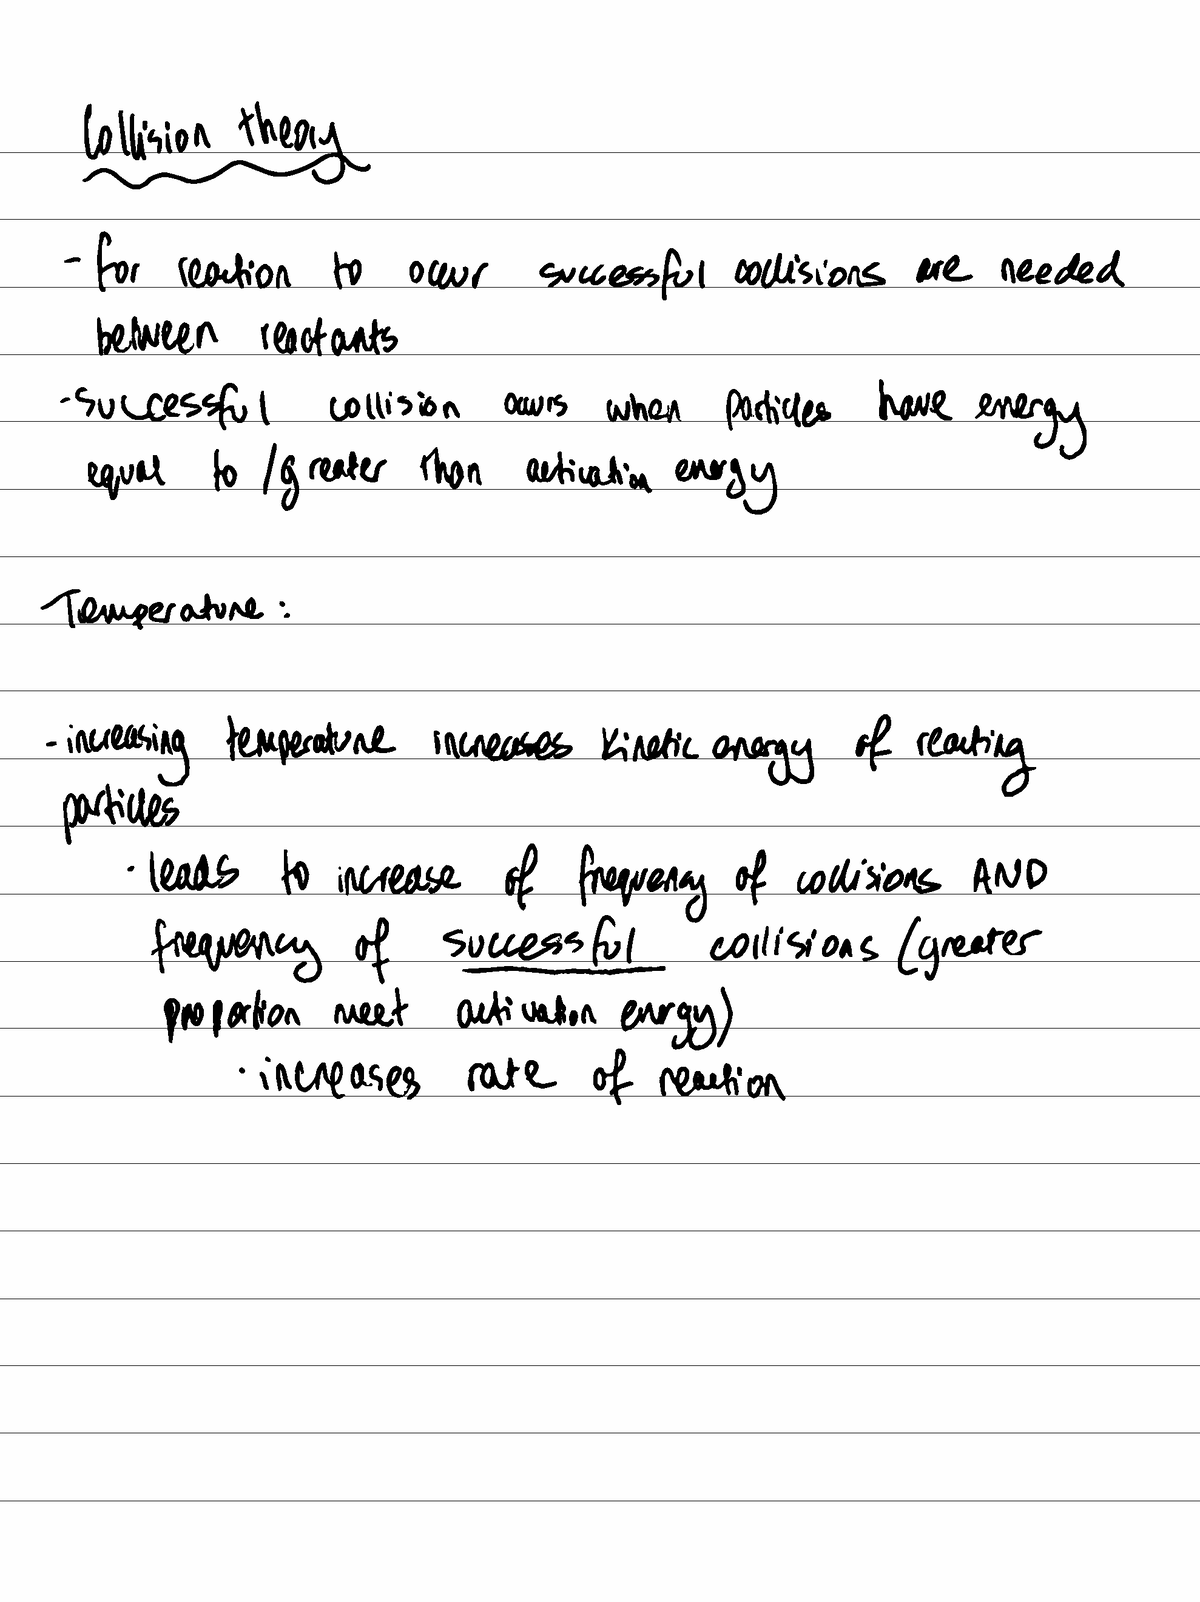 Collision theory
- for reaction to occur successful collisions are needed
between reactants
- successful collision occurs when particles have energy
equal to / greater than activation energy
Temperature :
- increasing temperature increases kinetic energy of reacting
particles
· leads to increase of frequency of collisions AND
frequency of successful collisions (greater
proportion meet activation energy)
· increases rate of reaction